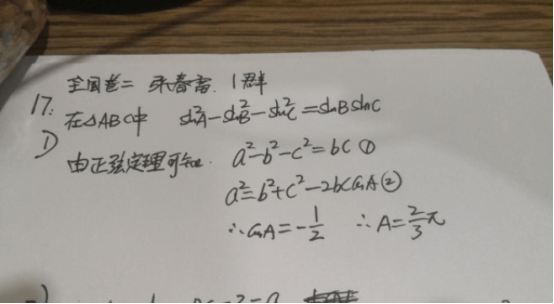 全国卷二 1群
17.
在△ABC中 sin²A-sin²B-sin²C=sinBsinC
1)
由正弦定理可知. a²-b²-c²=bc①
a²=b²+c²-2bccosA②
∴cosA=-1/2 ∴A=2/3π